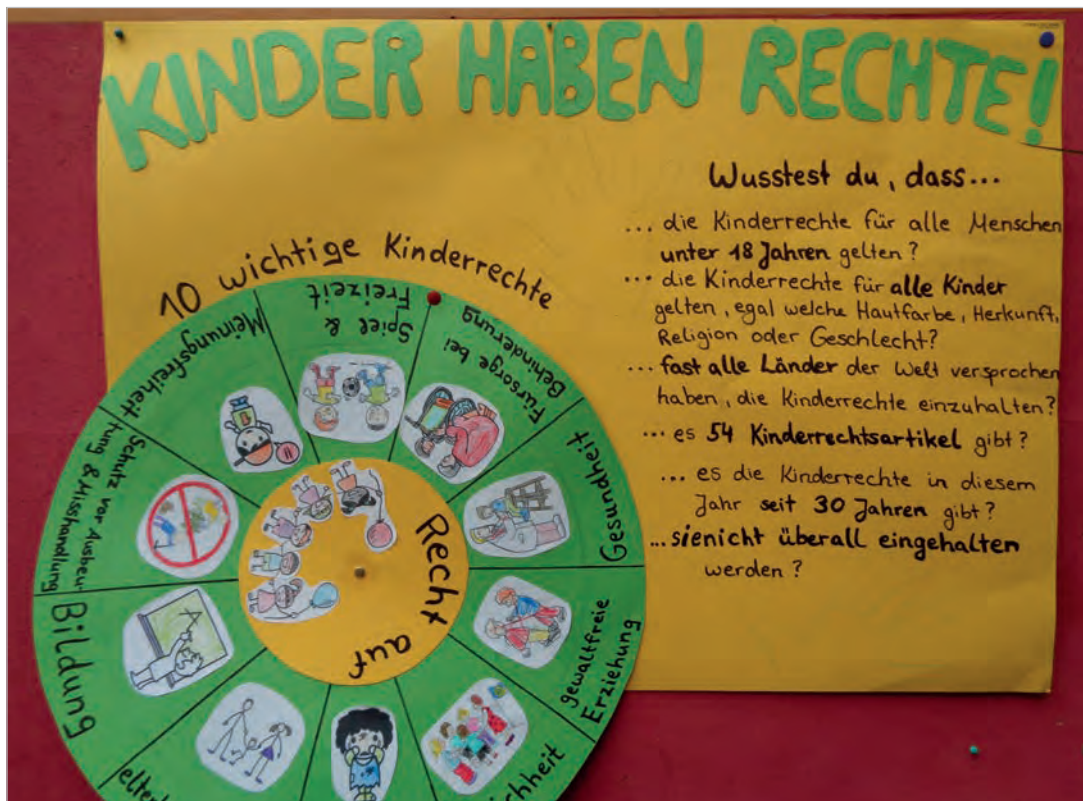 KINDER HABEN RECHTE!
Wusstest du, dass...
... die Kinderrechte für alle Menschen
unter 18 Jahren gelten?
... die Kinderrechte für alle Kinder
gelten, egal welche Hautfarbe, Herkunft,
Religion oder Geschlecht?
... fast alle Länder der Welt versprochen
haben, die Kinderrechte einzuhalten?
... es 54 Kinderrechtsartikel gibt?
... es die Kinderrechte in diesem
Jahr seit 30 Jahren gibt?
... sie nicht überall eingehalten
werden?
10 wichtige Kinderrechte
Recht auf
Spiel &
Freizeit
Fürsorge bei
Behinderung
Gesundheit
gewaltfreie
Erziehung
Bildung
Schutz vor Ausbeu-
tung & Misshandlung
Meinungsfreiheit